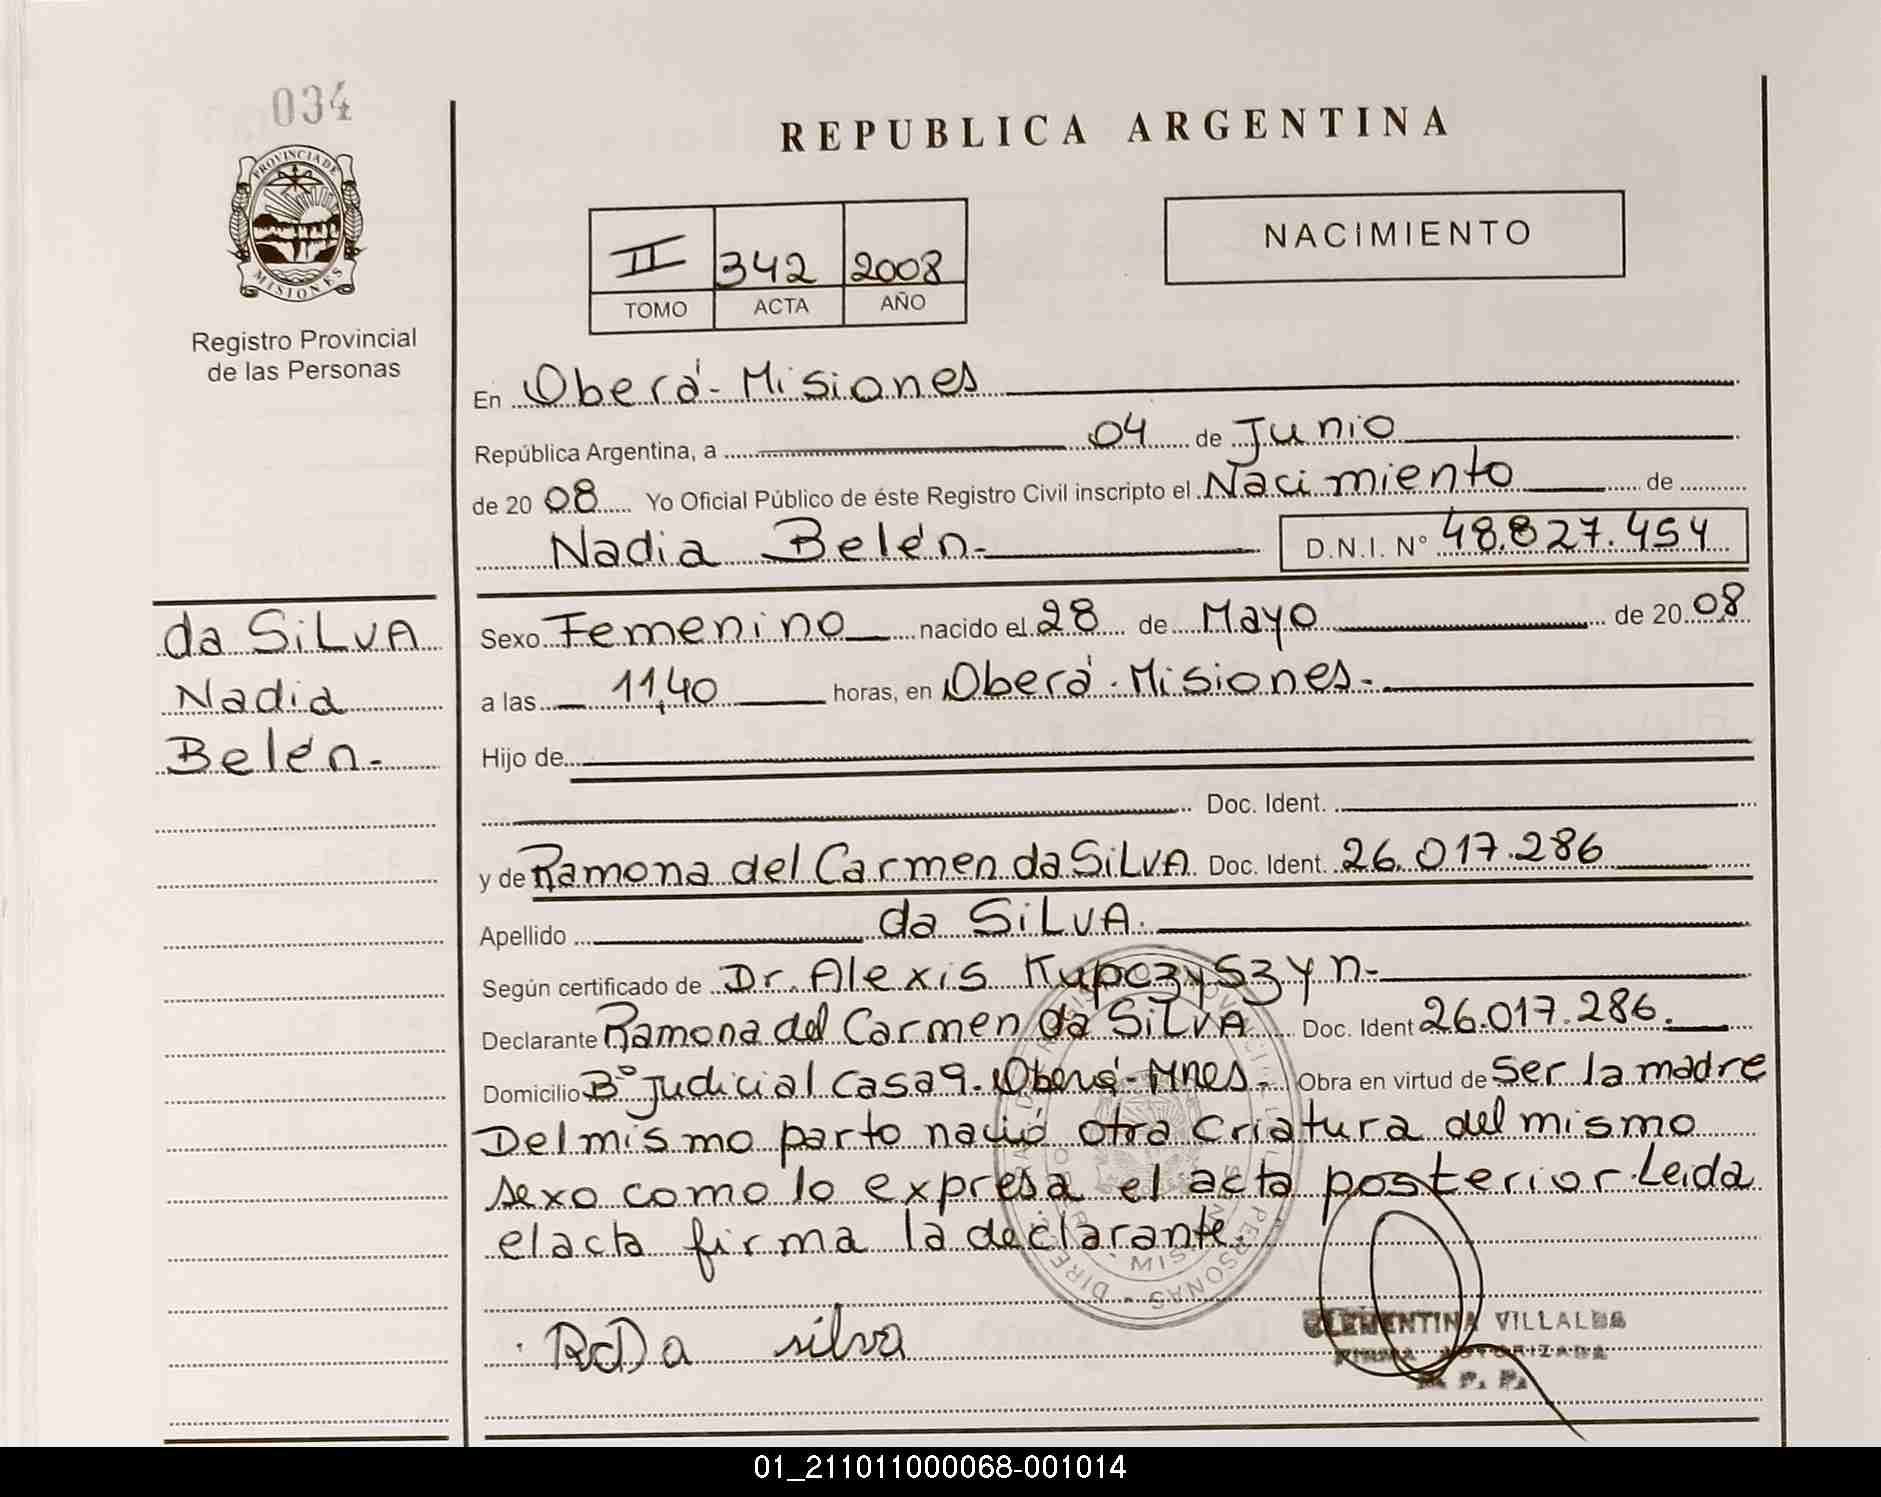 034
PROVINCIA DE
MISIONES
Registro Provincial
de las Personas
REPUBLICA ARGENTINA
II 342 2008
TOMO ACTA AÑO
NACIMIENTO
En Oberá - Misiones
República Argentina, a 04 de Junio
de 20 08 Yo Oficial Público de éste Registro Civil inscripto el Nacimiento de
Nadia Belén.- D.N.I. N° 48.827.454
da SiLVA
Nadia
Belén.-
Sexo Femenino nacido el 28 de Mayo de 20 08
a las 11,40 horas, en Oberá - Misiones.-
Hijo de
Doc. Ident.
y de Ramona del Carmen da SiLVA Doc. Ident. 26.017.286
Apellido da SiLVA.
Según certificado de Dr. Alexis Kupczyszyn.-
Declarante Ramona del Carmen da SiLVA Doc. Ident 26.017.286.
Domicilio B° Judicial Casa 9. Oberá - Mnes.- Obra en virtud de Ser la madre
Del mismo parto nació otra criatura del mismo
sexo como lo expresa el acta posterior. Leida
el acta firma la declarante.
RcDa silva
CLEMENTINA VILLALBA
FIRMA AUTORIZADA
R. P. P.
01_211011000068-001014